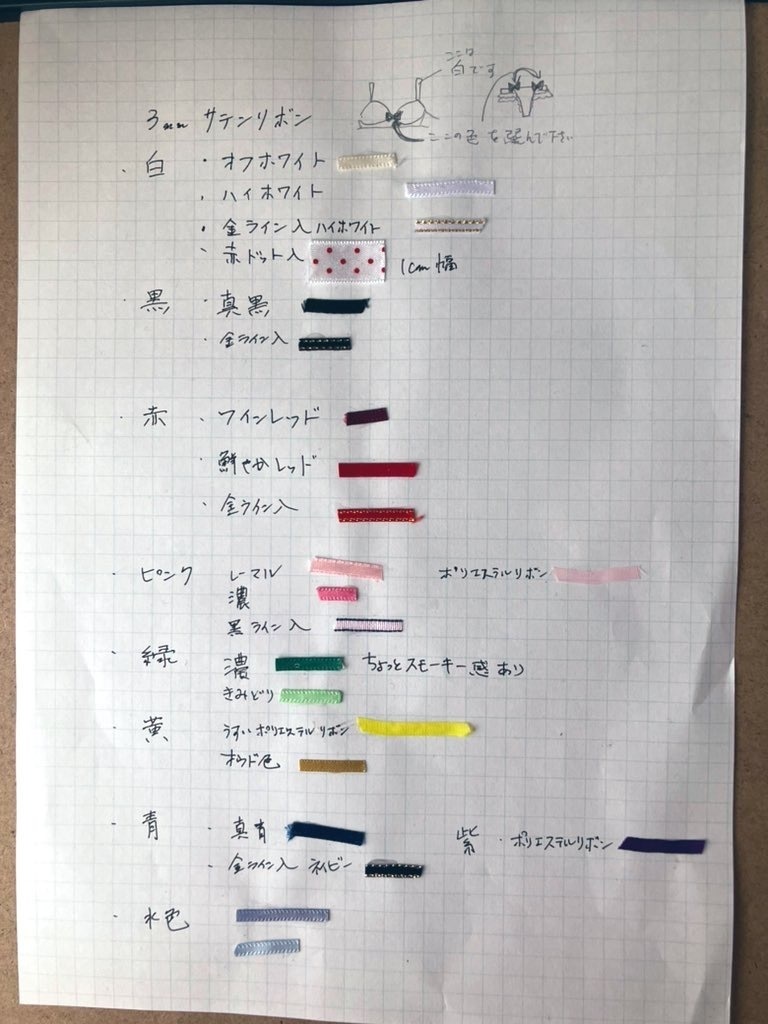 ここは
白です
3mm サテンリボン
ここの色を選んで下さい
・白 ・オフホワイト
・ハイホワイト
・金ライン入ハイホワイト
・赤ドット入 1cm幅
・黒 ・真黒
・金ライン入
・赤 ・ワインレッド
・鮮やかレッド
・金ライン入
・ピンク ノーマル ポリエステルリボン
濃
黒ライン入
・緑 濃 ちょっとスモーキー感あり
きみどり
・黄 うすいポリエステルリボン
オウド色
・青 ・真青 紫・ポリエステルリボン
・金ライン入 ネイビー
・水色